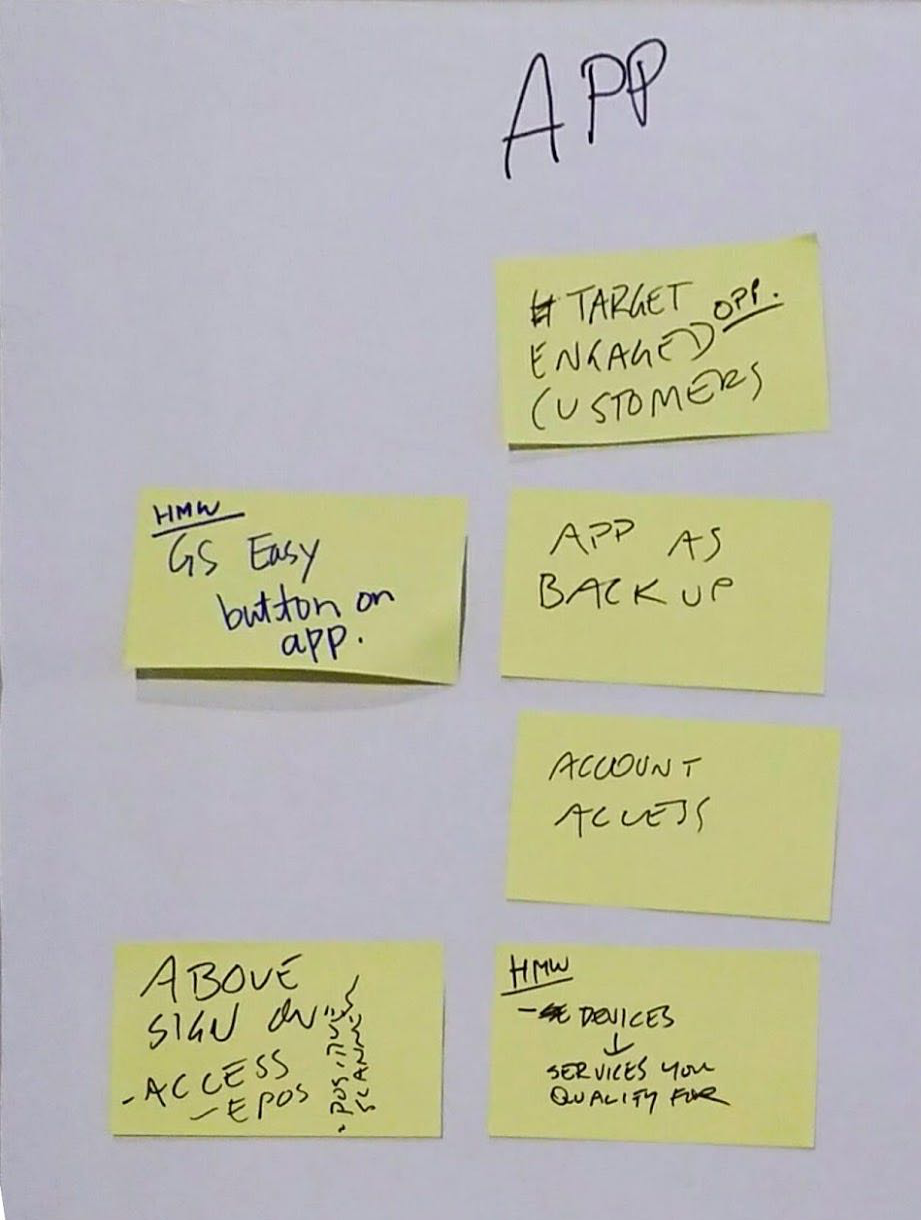 APP
# TARGET OPP.
ENGAGED
CUSTOMERS
HMW
GS Easy
button on
app.
APP AS
BACKUP
ACCOUNT
ACCESS
ABOVE
SIGN ON
-ACCESS
-EPOS
HMW
- DEVICES
↓
SERVICES YOU
QUALIFY FOR